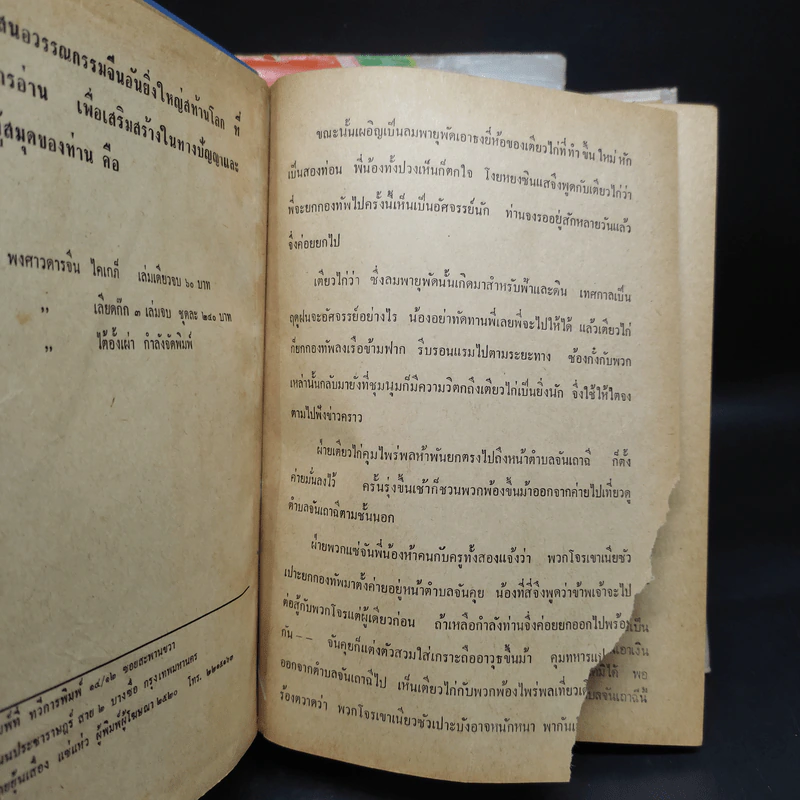 สนอวรรณกรรมจีนอันยิ่งใหญ่สท้านโลก ที่
ารอ่าน เพื่อเสริมสร้างในทางปัญญาและ
ู้สมุดของท่าน คือ
พงศาวดารจีน ไคเภ็ก เล่มเดียวจบ ๖๐ บาท
„ เลียดก๊ก ๓ เล่มจบ ชุดละ ๒๔๐ บาท
„ ไต้อั้งเผ่า กำลังจัดพิมพ์
พ์ที่ ทวีการพิมพ์ ๑๔/๑๒ ซอยสะพานขวา
นนประชาราษฎร์ สาย ๒ บางซื่อ กรุงเทพมหานคร
แซ่แห่ว ผู้พิมพ์ผู้โฆษณา ๒๕๒๐ โทร.
ขณะนั้นเผอิญเป็นลมพายุพัดเอาธงยี่ห้อของเตียวไก่ที่ทำขึ้นใหม่หัก
เป็นสองท่อน พี่น้องทั้งปวงเห็นก็ตกใจ โงยหยงซินแสจึงพูดกับเตียวไก่ว่า
พี่จะยกกองทัพไปครั้งนี้เห็นเป็นอัศจรรย์นัก ท่านจงรออยู่สักหลายวันแล้ว
จึงค่อยยกไป
เตียวไก่ว่า ซึ่งลมพายุพัดนั้นเกิดมาสำหรับฟ้าและดิน เทศกาลเป็น
ฤดูฝนจะอัศจรรย์อย่างไร น้องอย่าทัดทานพี่เลยพี่จะไปให้ได้ แล้วเตียวไก่
ก็ยกกองทัพลงเรือข้ามฟาก รีบรอนแรมไปตามระยะทาง ซ้องกั๋งกับพวก
เหล่านั้นกลับมายังที่ชุมนุมก็มีความวิตกถึงเตียวไก่เป็นยิ่งนัก จึงใช้ให้ไตจง
ตามไปฟังข่าวคราว
ฝ่ายเตียวไก่คุมไพร่พลห้าพันยกตรงไปถึงหน้าตำบลจันเถาฉี ก็ตั้ง
ค่ายมั่นลงไว้ ครั้นรุ่งขึ้นเช้าก็ชวนพวกพ้องขึ้นม้าออกจากค่ายไปเที่ยวดู
ตำบลจันเถาฉีตามชั้นนอก
ฝ่ายพวกแซ่จันพี่น้องห้าคนกับครูทั้งสองแจ้งว่า พวกโจรเขาเนียซัว
เปาะยกกองทัพมาตั้งค่ายอยู่หน้าตำบลจันคุย น้องที่สี่จึงพูดว่าข้าพเจ้าจะไป
ต่อสู้กับพวกโจรแต่ผู้เดียวก่อน ถ้าเหลือกำลังท่านจึงค่อยยกออกไปพร้อม
กัน -- จันคุยก็แต่งตัวสวมใส่เกราะถืออาวุธขึ้นม้า คุมทหาร
ออกจากตำบลจันเถาฉีไป เห็นเตียวไก่กับพวกพ้องไพร่พลเที่ยว
ร้องตวาดว่า พวกโจรเขาเนียซัวเปาะบังอาจหนักหนา พากัน